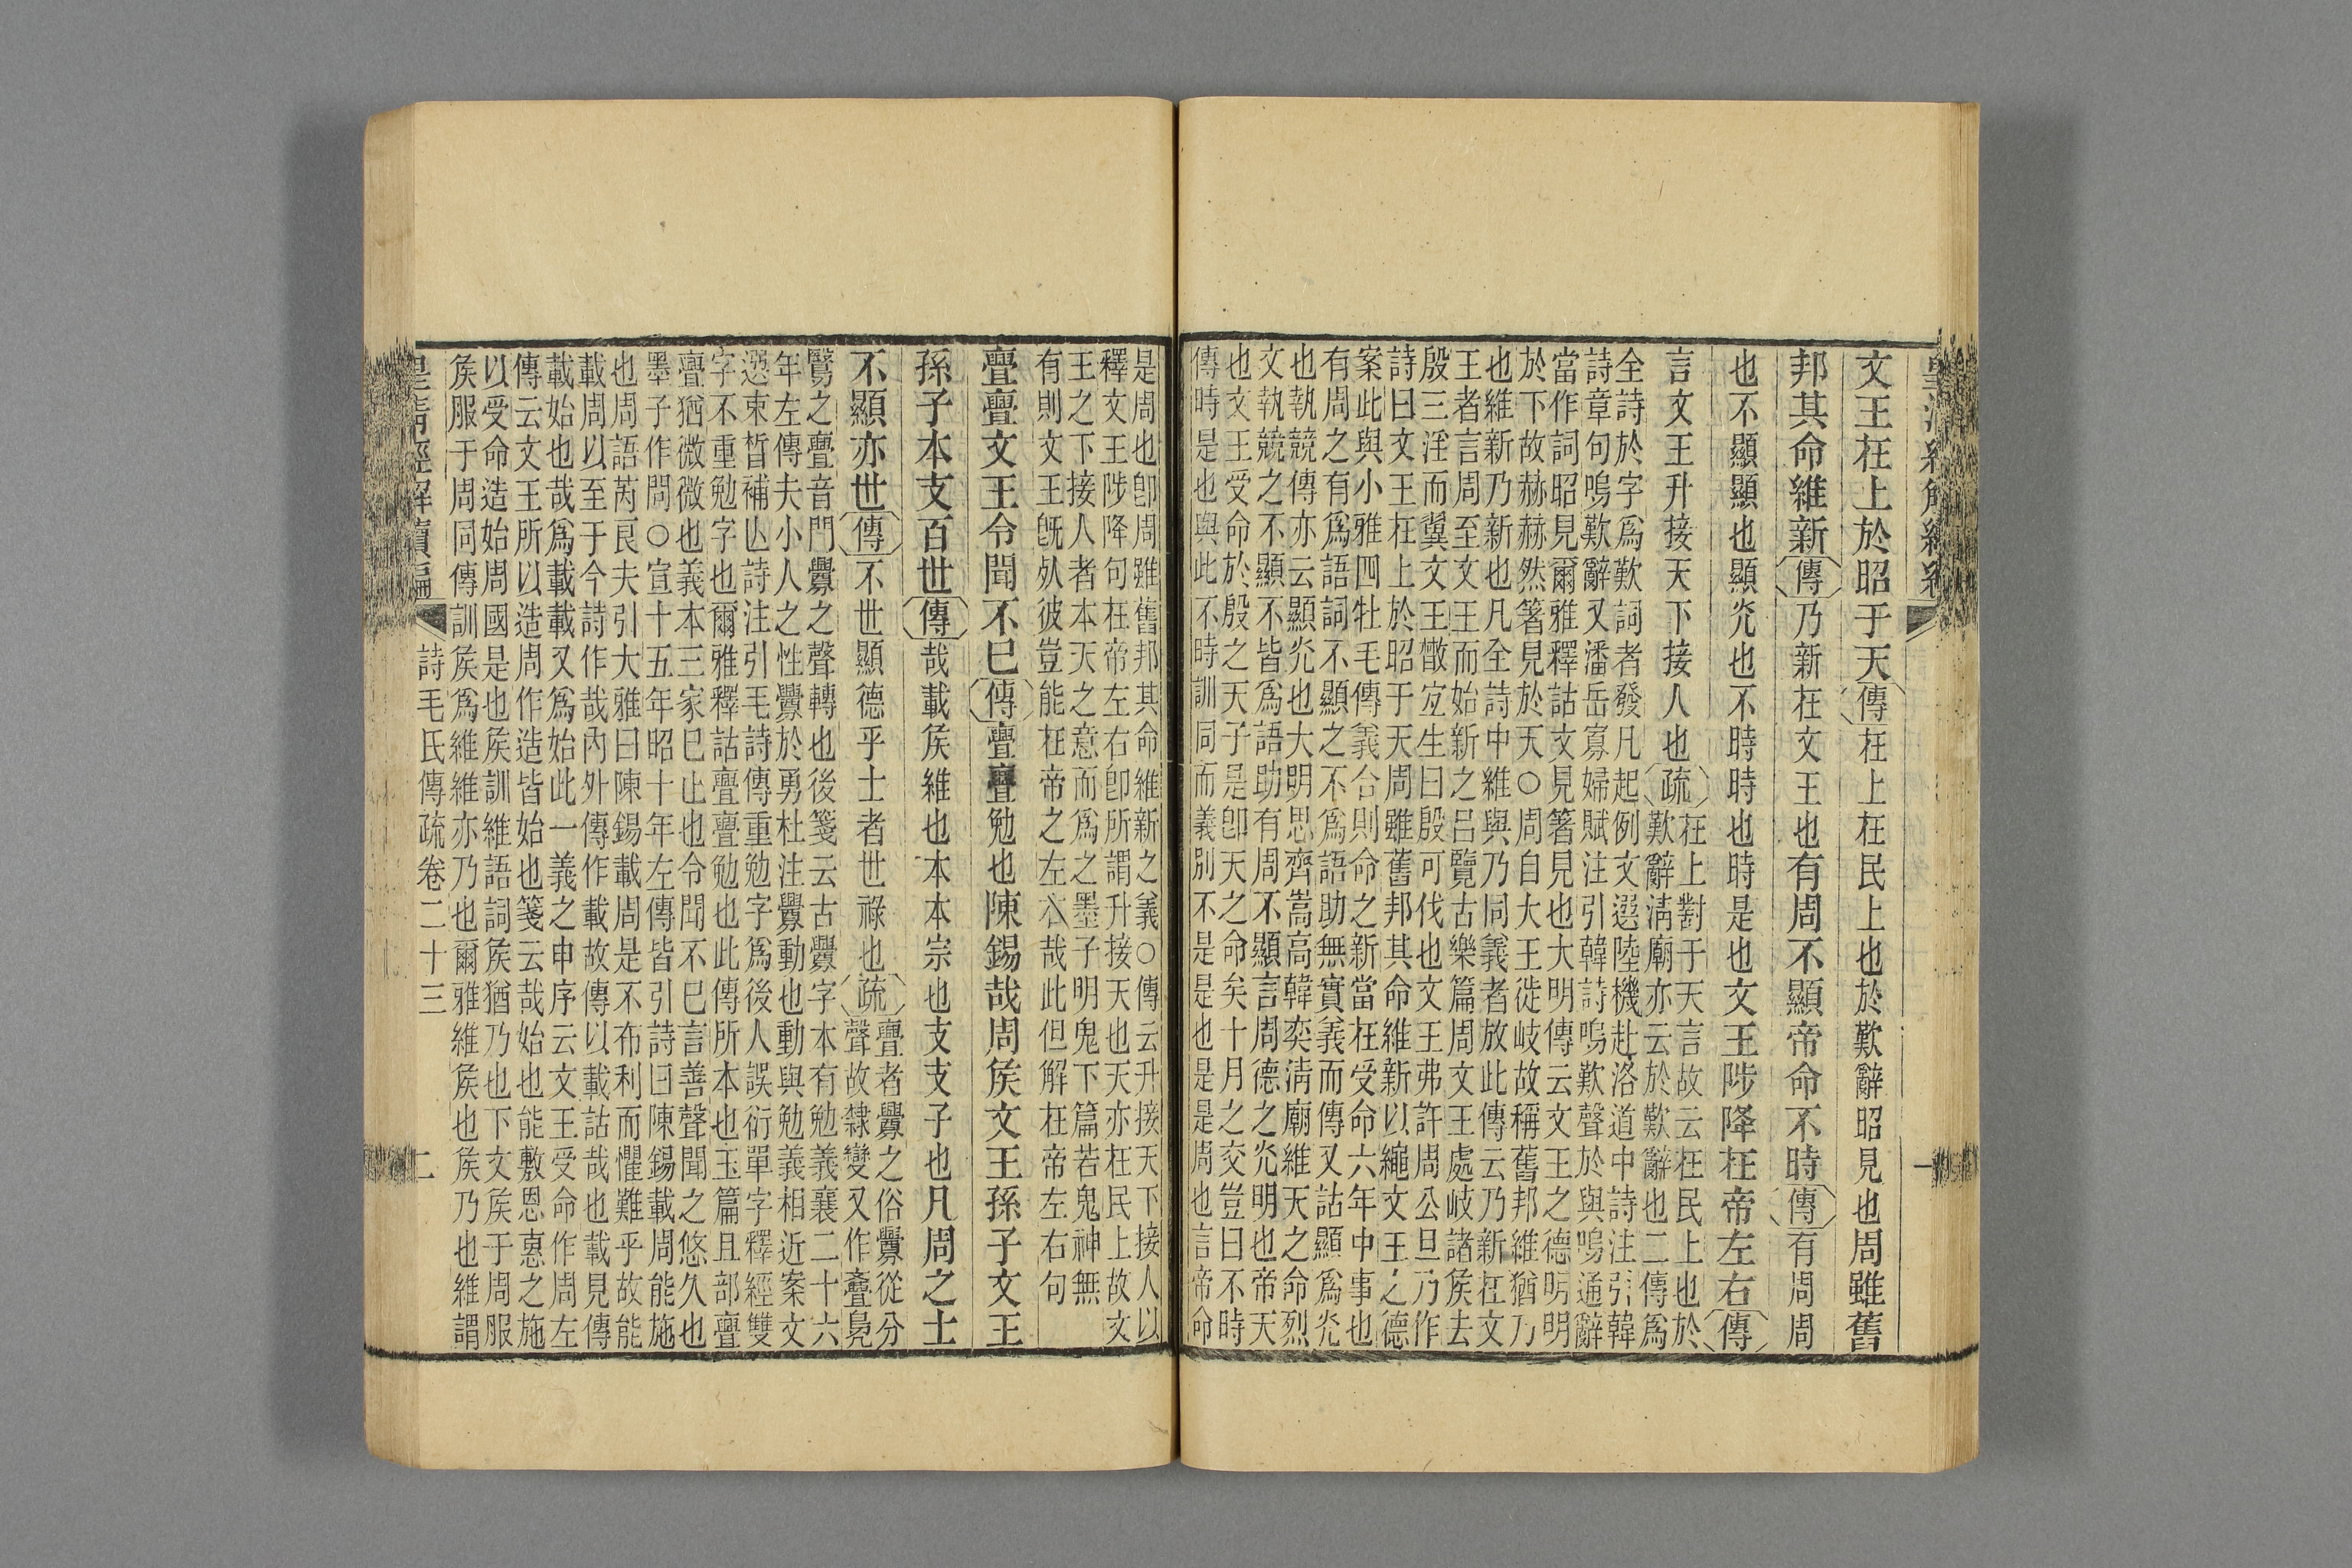 皇清經解續編
一
文王在上於昭于天傳在上在民上也於歎辭昭見也周雖舊
邦其命維新傳乃新在文王也有周不顯帝命不時傳有周周
也不顯顯也顯光也不時時也時是也文王陟降在帝左右傳
言文王升接天下接人也疏在上對于天言故云在民上也於
歎辭淸廟亦云於歎辭也二傳爲
全詩於字爲歎詞者發凡起例文選陸機赴洛道中詩注引韓
詩章句嗚歎辭又潘岳寡婦賦注引韓詩嗚歎聲於與嗚通辭
當作詞昭見爾雅釋詁文見箸見也大明傳云文王之德明明
於下故赫赫然箸見於天○周自大王徙岐故稱舊邦維猶乃
也維新乃新也凡全詩中維與乃同義者放此傳云乃新在文
王者言周至文王而始新之呂覽古樂篇周文王處岐諸矦去
殷三淫而冀文王散宜生曰殷可伐也文王弗許周公旦乃作
詩曰文王在上於昭于天周雖舊邦其命維新以繩文王之德
案此與小雅四牡毛傳義合則命之新當在受命六年中事也
有周之有爲語詞不顯之不爲語助無實義而傳又詁顯爲光
也執競傳亦云顯光也大明思齊嵩高韓奕淸廟維天之命烈
文執競之不顯不皆爲語助有周不顯言周德之光明也帝天
也文王受命於殷之天子是卽天之命矣十月之交豈曰不時
傳時是也與此不時訓同而義別不是是也是是周也言帝命
是周也卽周雖舊邦其命維新之義○傳云升接天下接人以
釋文王陟降句在帝左右卽所謂升接天也天亦在民上故文
王之下接人者本天之意而爲之墨子明鬼下篇若鬼神無
有則文王旣死彼豈能在帝之左右哉此但解在帝左右句
亹亹文王令聞不已傳亹亹勉也陳錫哉周矦文王孫子文王
孫子本支百世傳哉載矦維也本本宗也支支子也凡周之士
不顯亦世傳不世顯德乎士者世祿也疏亹者釁之俗釁從分
聲故隸變又作亹鳧
鷖之亹音門釁之聲轉也後箋云古釁字本有勉義襄二十六
年左傳夫小人之性釁於勇杜注釁動也動與勉義相近案文
選束皙補亾詩注引毛詩傳重勉字爲後人誤衍單字釋經雙
字不重勉字也爾雅釋詁亹亹勉也此傳所本也玉篇且部亹
亹猶微微也義本三家已止也令聞不已言善聲聞之悠久也
墨子作問○宣十五年昭十年左傳皆引詩曰陳錫載周能施
也周語芮良夫引大雅曰陳錫載周是不布利而懼難乎故能
載周以至于今詩作哉內外傳作載故傳以載詁哉也載見傳
載始也哉爲載載又爲始此一義之申序云文王受命作周左
傳云文王所以造周作造皆始也箋云哉始也能敷恩惠之施
以受命造始周國是也矦訓維語詞矦猶乃也下文矦于周服
矦服于周同傳訓矦爲維維亦乃也爾雅維矦也矦乃也維謂
皇淸經解續編
詩毛氏傳疏卷二十三
二